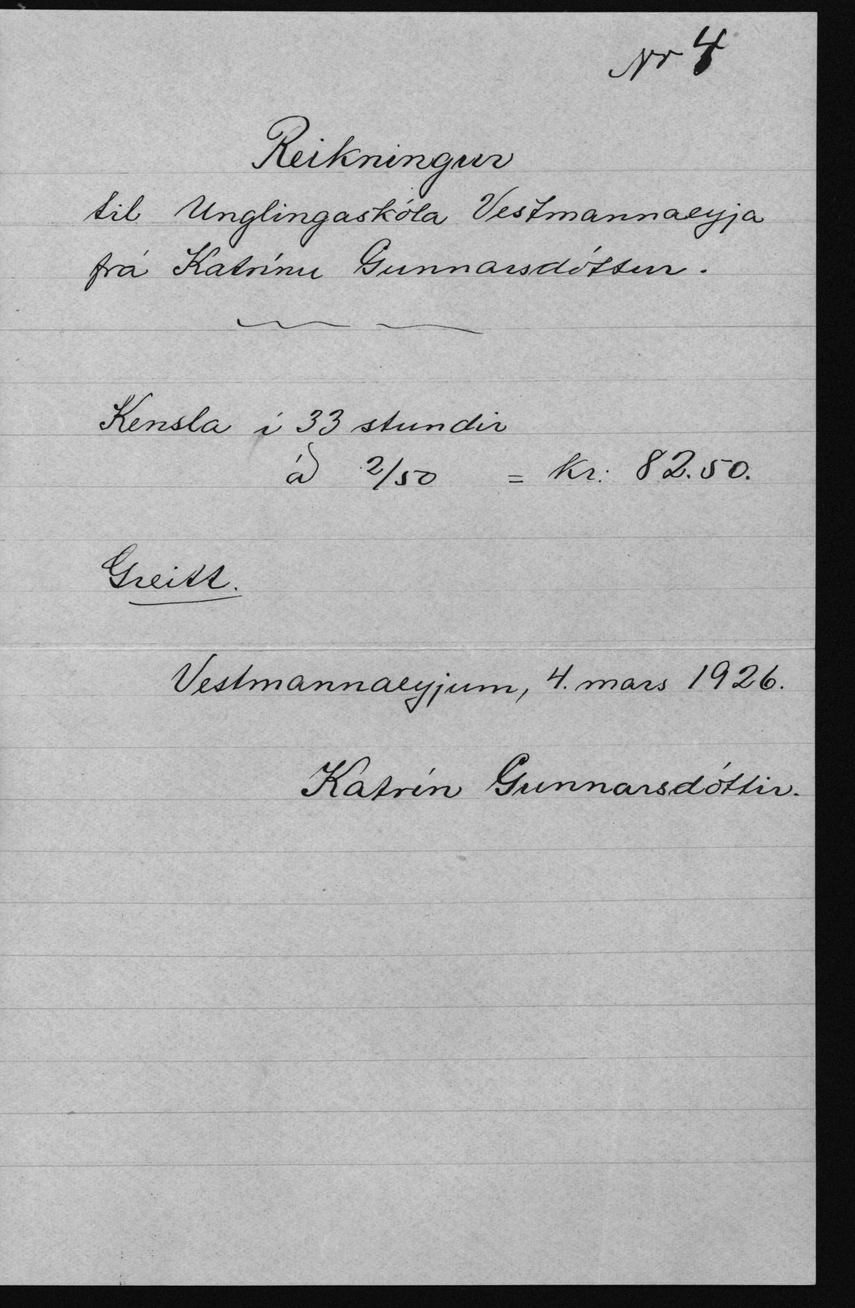 Nr 4
Reikningur
til Unglingaskóla Vestmannaeyja
frá Katrínu Gunnarsdóttur.
Kensla í 33 stundir
á 2/50 = kr: 82.50.
Greitt.
Vestmannaeyjum, 4. mars 1926.
Katrín Gunnarsdóttir.